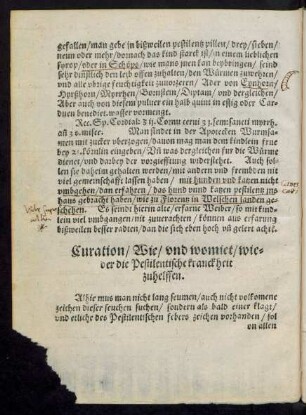 gefallen/man gebe in bißweilen pestilentz pillen/ drey/ sieben/
neun oder mehr/ darnach das kind starck ist/ in einem lieblichen
syrop/ oder in Schöps/ wie mans jnen kan beybringen/ seind
sehr dinstlich den leib offen zuhalten/ den Würmen zuwehren/
und alle vbrige feuchtigkeit zuuorzeren/
Hyrßhorn/ Myrrhen/ Diptam/ vnd dergleichen/
Aber auch von diesem puluer ein halb quint in essig oder Car-
duen benedict. wasser vermengt.
Rec. Sp. Cordial.
Man findet in der Apotecken Wurmsa-
men mit zucker vberzogen/ dauon mag man dem kindlein frue
bey 21. körnlin eingeben/ Vñ was dergleichen fur die Würme
dienet/ vnd darbey der vorgiefftung widerstehet. Auch sol-
len sie daheim gehalten/ mit andern vnd frembden nit
viel gemeinschafft lassen haben/ mit hunden vnd katzen nicht
vmbgehen/ dan erfahren/ das hund vund katzen pestilentz zu
haus gebracht haben/ wie zu Florentz in Welschen landen ge-
schehen. Es seindt hierin alte/ erfarne Weiber/ so mit kind-
lein viel vmbgangen/ nit zuuorachten/ können aus erfarung
bißweilen besser radten/ dan die sich eben hoch vñ gelert achtē.
Curation/ Wie/ vnd wonniet/ wie-
der die Pestilentische kranckheit
zuhelffen.
Alhie mus man nicht lang seumen/ auch nicht volkomene
zeichen dieser seuchen suchen/ sondern als bald einer klagt/
vnd etliche des Pestilentischen febers zeichen vorhanden/ sol
von allen